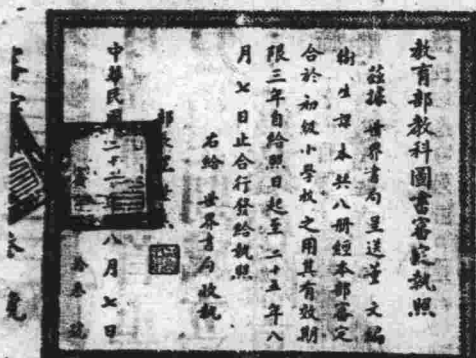 教育部教科圖書審定執照
茲據世界書局呈送董文編
衛生課本共八冊經本部審定
合於初級小學校之用其有效期
限三年自給照日起至二十五年八
月七日止合行發給執照
右給 世界書局收執
部長王世杰
中華民國二十二年八月七日